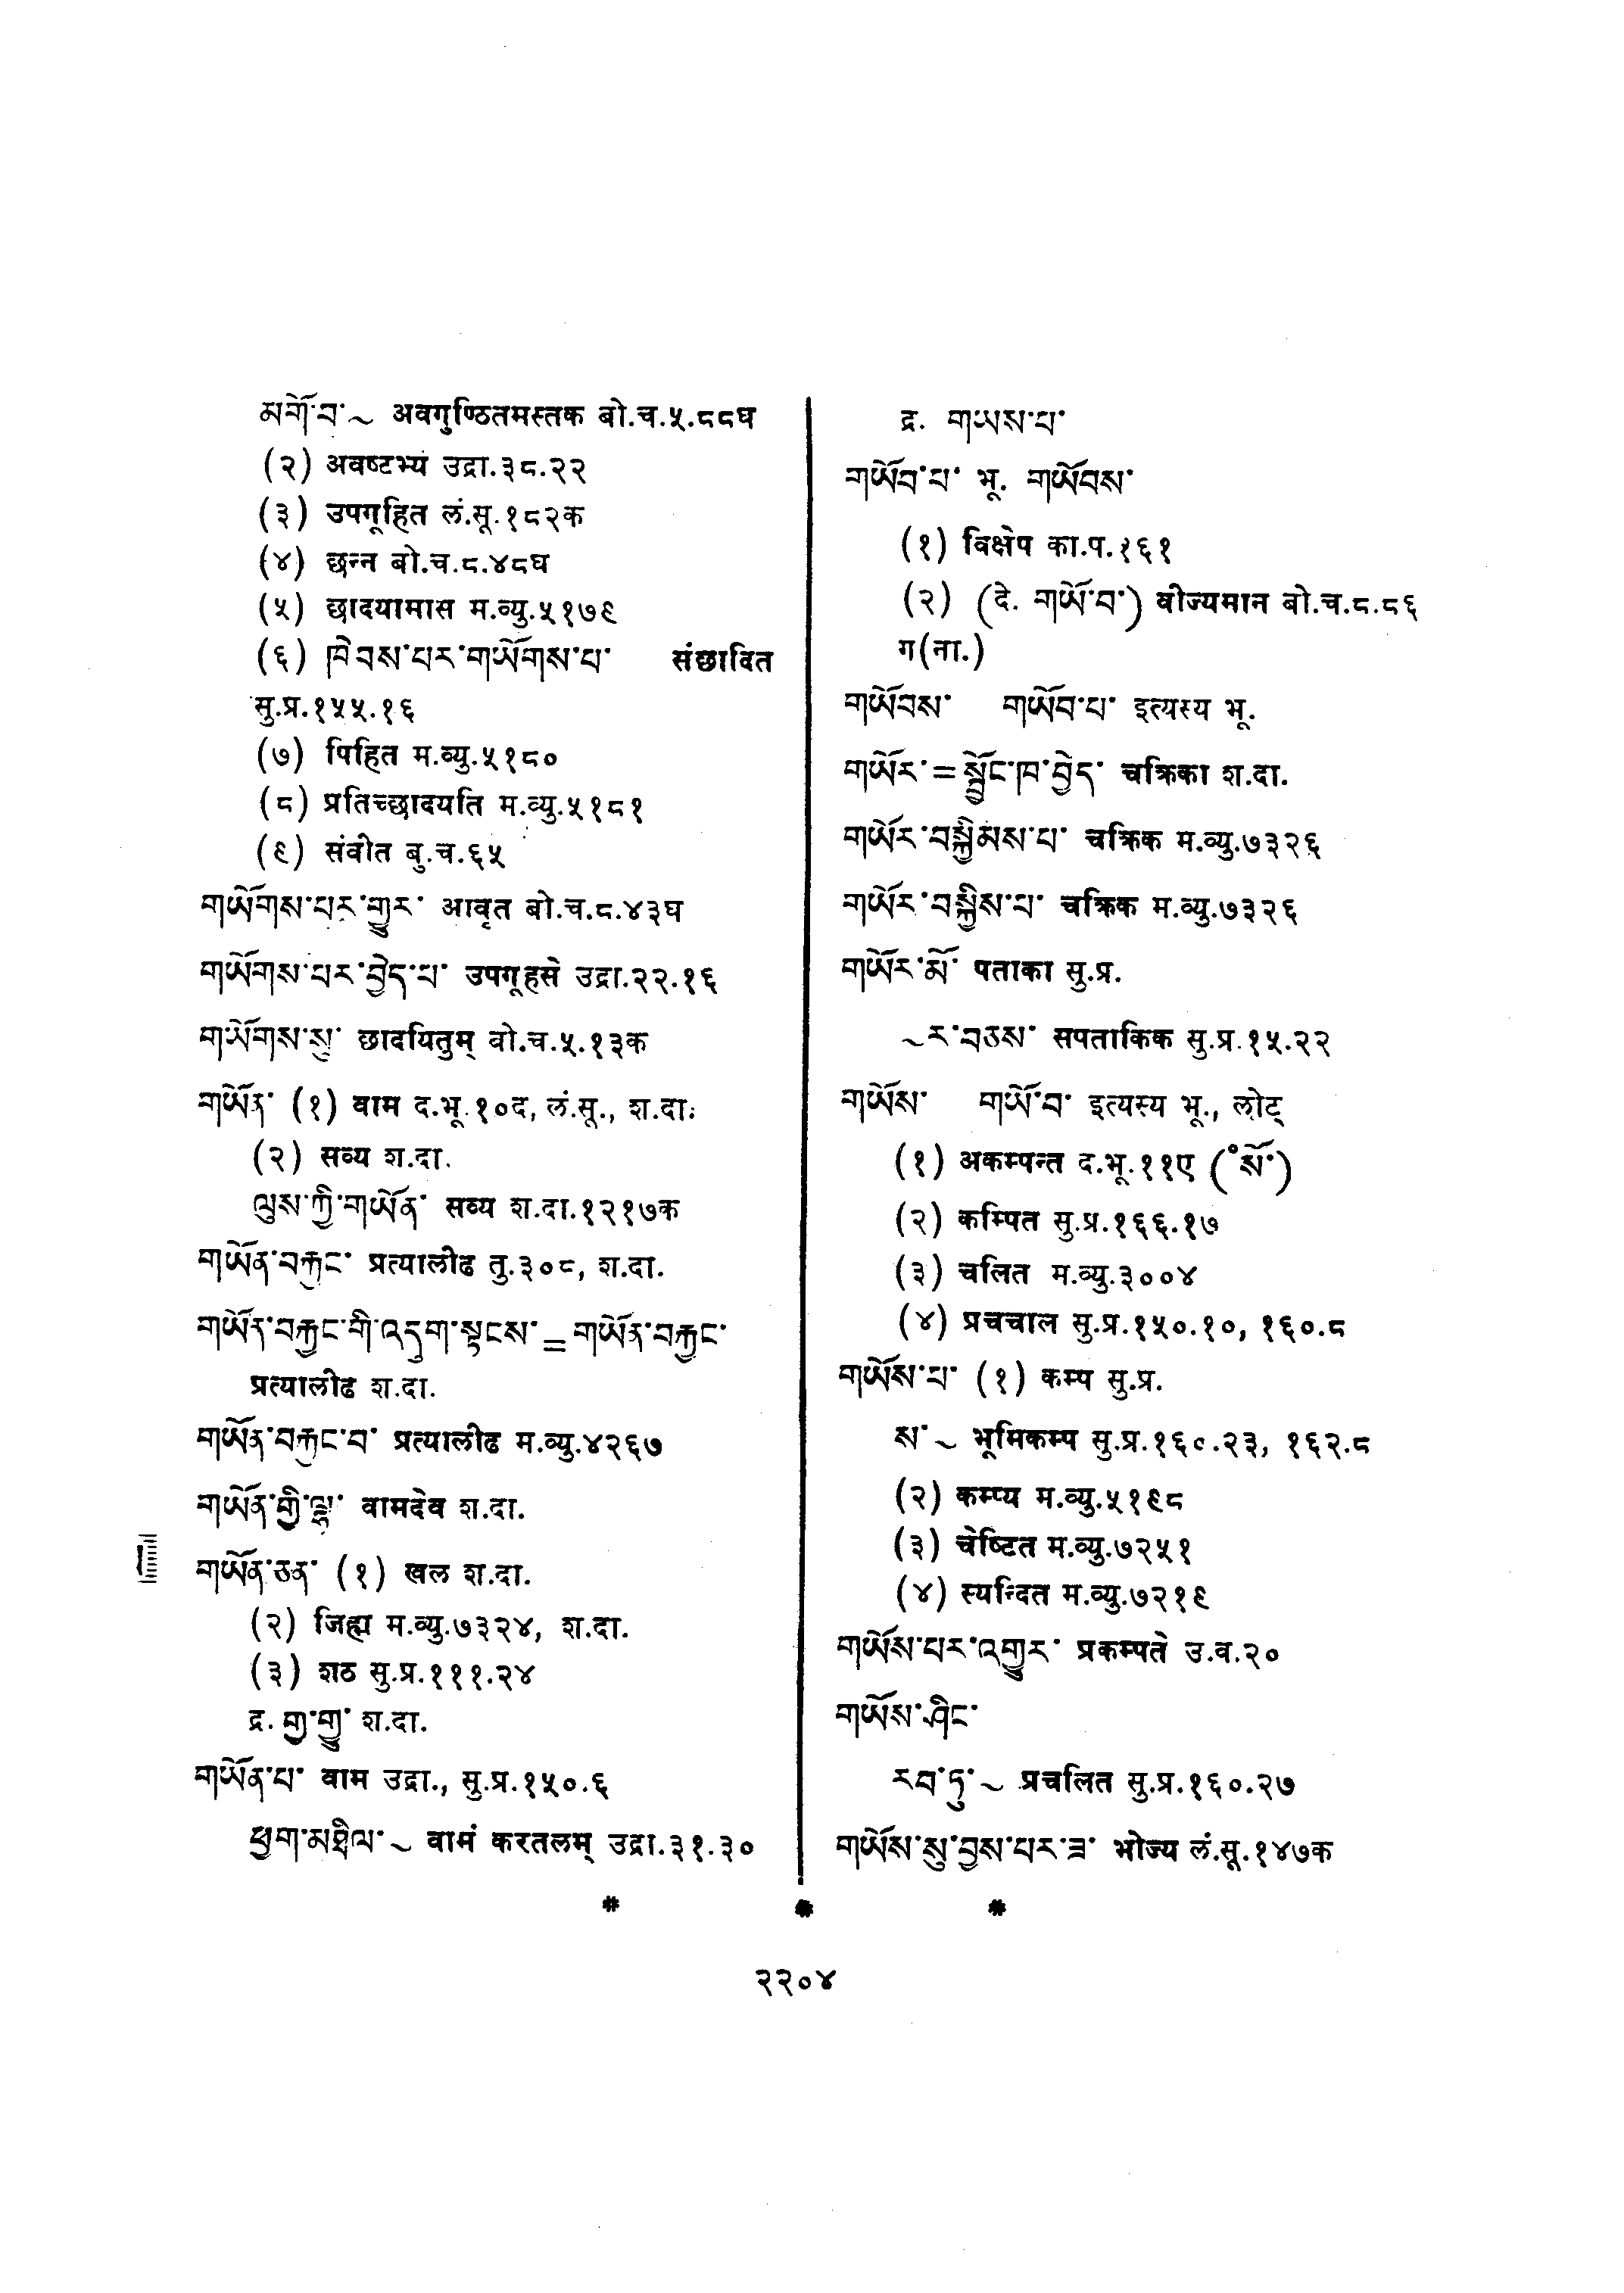 མགོ་བ་~ अवगुण्ठितमस्तक बो.च.५.८८घ
(२) अवष्टभ्य उद्रा.३८.२२
(३) उपगूहित लं.सू.१८२क
(४) छन्न बो.च.८.४८घ
(५) छादयामास म.व्यु.५१७९
(६) ཁེབས་པར་གཡོགས་པ་ संछादित
सु.प्र.१५५.१६
(७) पिहित म.व्यु.५१८०
(८) प्रतिच्छादयति म.व्यु.५१८१
(९) संवीत बु.च.६५
གཡོགས་པར་གྱུར་ आवृत बो.च.८.४३घ
གཡོགས་པར་བྱེད་པ་ उपगूहसे उद्रा.२२.१६
གཡོགས་སུ་ छादयितुम् बो.च.५.१३क
གཡོན་ (१) वाम द.भू.१०द, लं.सू., श.दा.
(२) सव्य श.दा.
ལུས་ཀྱི་གཡོན་ सव्य श.दा.१२१७क
གཡོན་བརྐྱང་ प्रत्यालीढ तु.३०८, श.दा.
གཡོན་བརྐྱང་གི་འདུག་སྟངས་=གཡོན་བརྐྱང་
प्रत्यालीढ श.दा.
གཡོན་བརྐྱང་བ་ प्रत्यालीढ म.व्यु.४२६७
གཡོན་གྱི་ལྷ་ वामदेव श.दा.
གཡོན་ཅན་ (१) खल श.दा.
(२) जिह्म म.व्यु.७३२४, श.दा.
(३) शठ सु.प्र.१११.२४
द्र. གྱ་གྱུ་ श.दा.
གཡོན་པ་ वाम उद्रा., सु.प्र.१५०.६
ཕྱག་མཐིལ་~ वामं करतलम् उद्रा.३१.३०
द्र. གཡས་པ་
གཡོབ་པ་ भू. གཡོབས་
(१) विक्षेप का.प.१६१
(२) (दे. གཡོ་བ་) वीज्यमान बो.च.८.८६
ग(ना.)
གཡོབས་ གཡོབ་པ་ इत्यस्य भू.
གཡོར་=སྦྲོང་ཁ་བྱེད་ चक्रिका श.दा.
གཡོར་བསྐྱིམས་པ་ चक्रिक म.व्यु.७३२६
གཡོར་བསྐྱིས་པ་ चक्रिक म.व्यु.७३२६
གཡོར་མོ་ पताका सु.प्र.
~ར་བཅས་ सपताकिक सु.प्र.१५.२२
གཡོས་ གཡོ་བ་ इत्यस्य भू., लोट्
(१) अकम्पन्त द.भू.११ए (°སོ་)
(२) कम्पित सु.प्र.१६६.१७
(३) चलित म.व्यु.३००४
(४) प्रचचाल सु.प्र.१५०.१०, १६०.८
གཡོས་པ་ (१) कम्प सु.प्र.
ས་~ भूमिकम्प सु.प्र.१६०.२३, १६२.८
(२) कम्प्य म.व्यु.५१९८
(३) चेष्टित म.व्यु.७२५१
(४) स्यन्दित म.व्यु.७२१९
གཡོས་པར་འགྱུར་ प्रकम्पते उ.व.२०
གཡོས་ཤིང་
རབ་ཏུ་~ प्रचलित सु.प्र.१६०.२७
གཡོས་སུ་བྱས་པར་ཟ་ भोज्य लं.सू.१४७क
* * *
२२०४